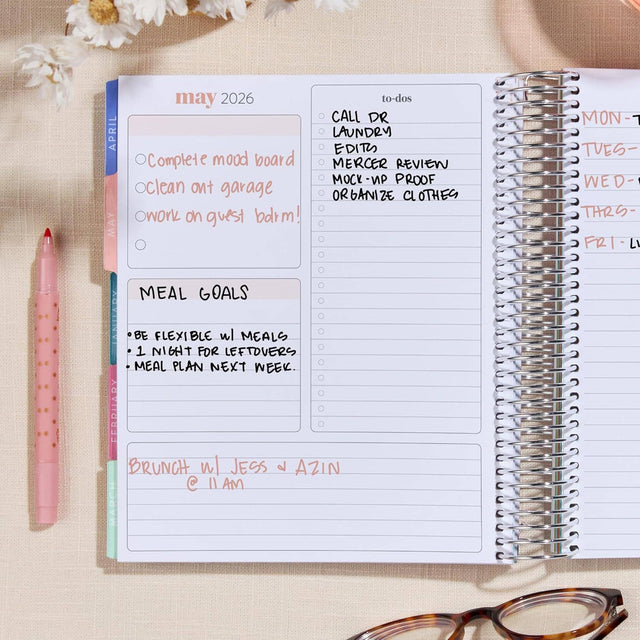 may 2026
Complete mood board
Clean out garage
work on guest bdrm!
MEAL GOALS
•BE FLEXIBLE W/ MEALS
• 1 NIGHT FOR LEFTOVERS
• MEAL PLAN NEXT WEEK.
to-dos
CALL DR
LAUNDRY
EDITS
MERCER REVIEW
MOCK-UP PROOF
ORGANIZE CLOTHES
BRUNCH W/ JESS & AZIN
@ 11 AM
APRIL
MAY
JANUARY
FEBRUARY
MARCH
MON-
TUES-
WED-
THRS-
FRI-